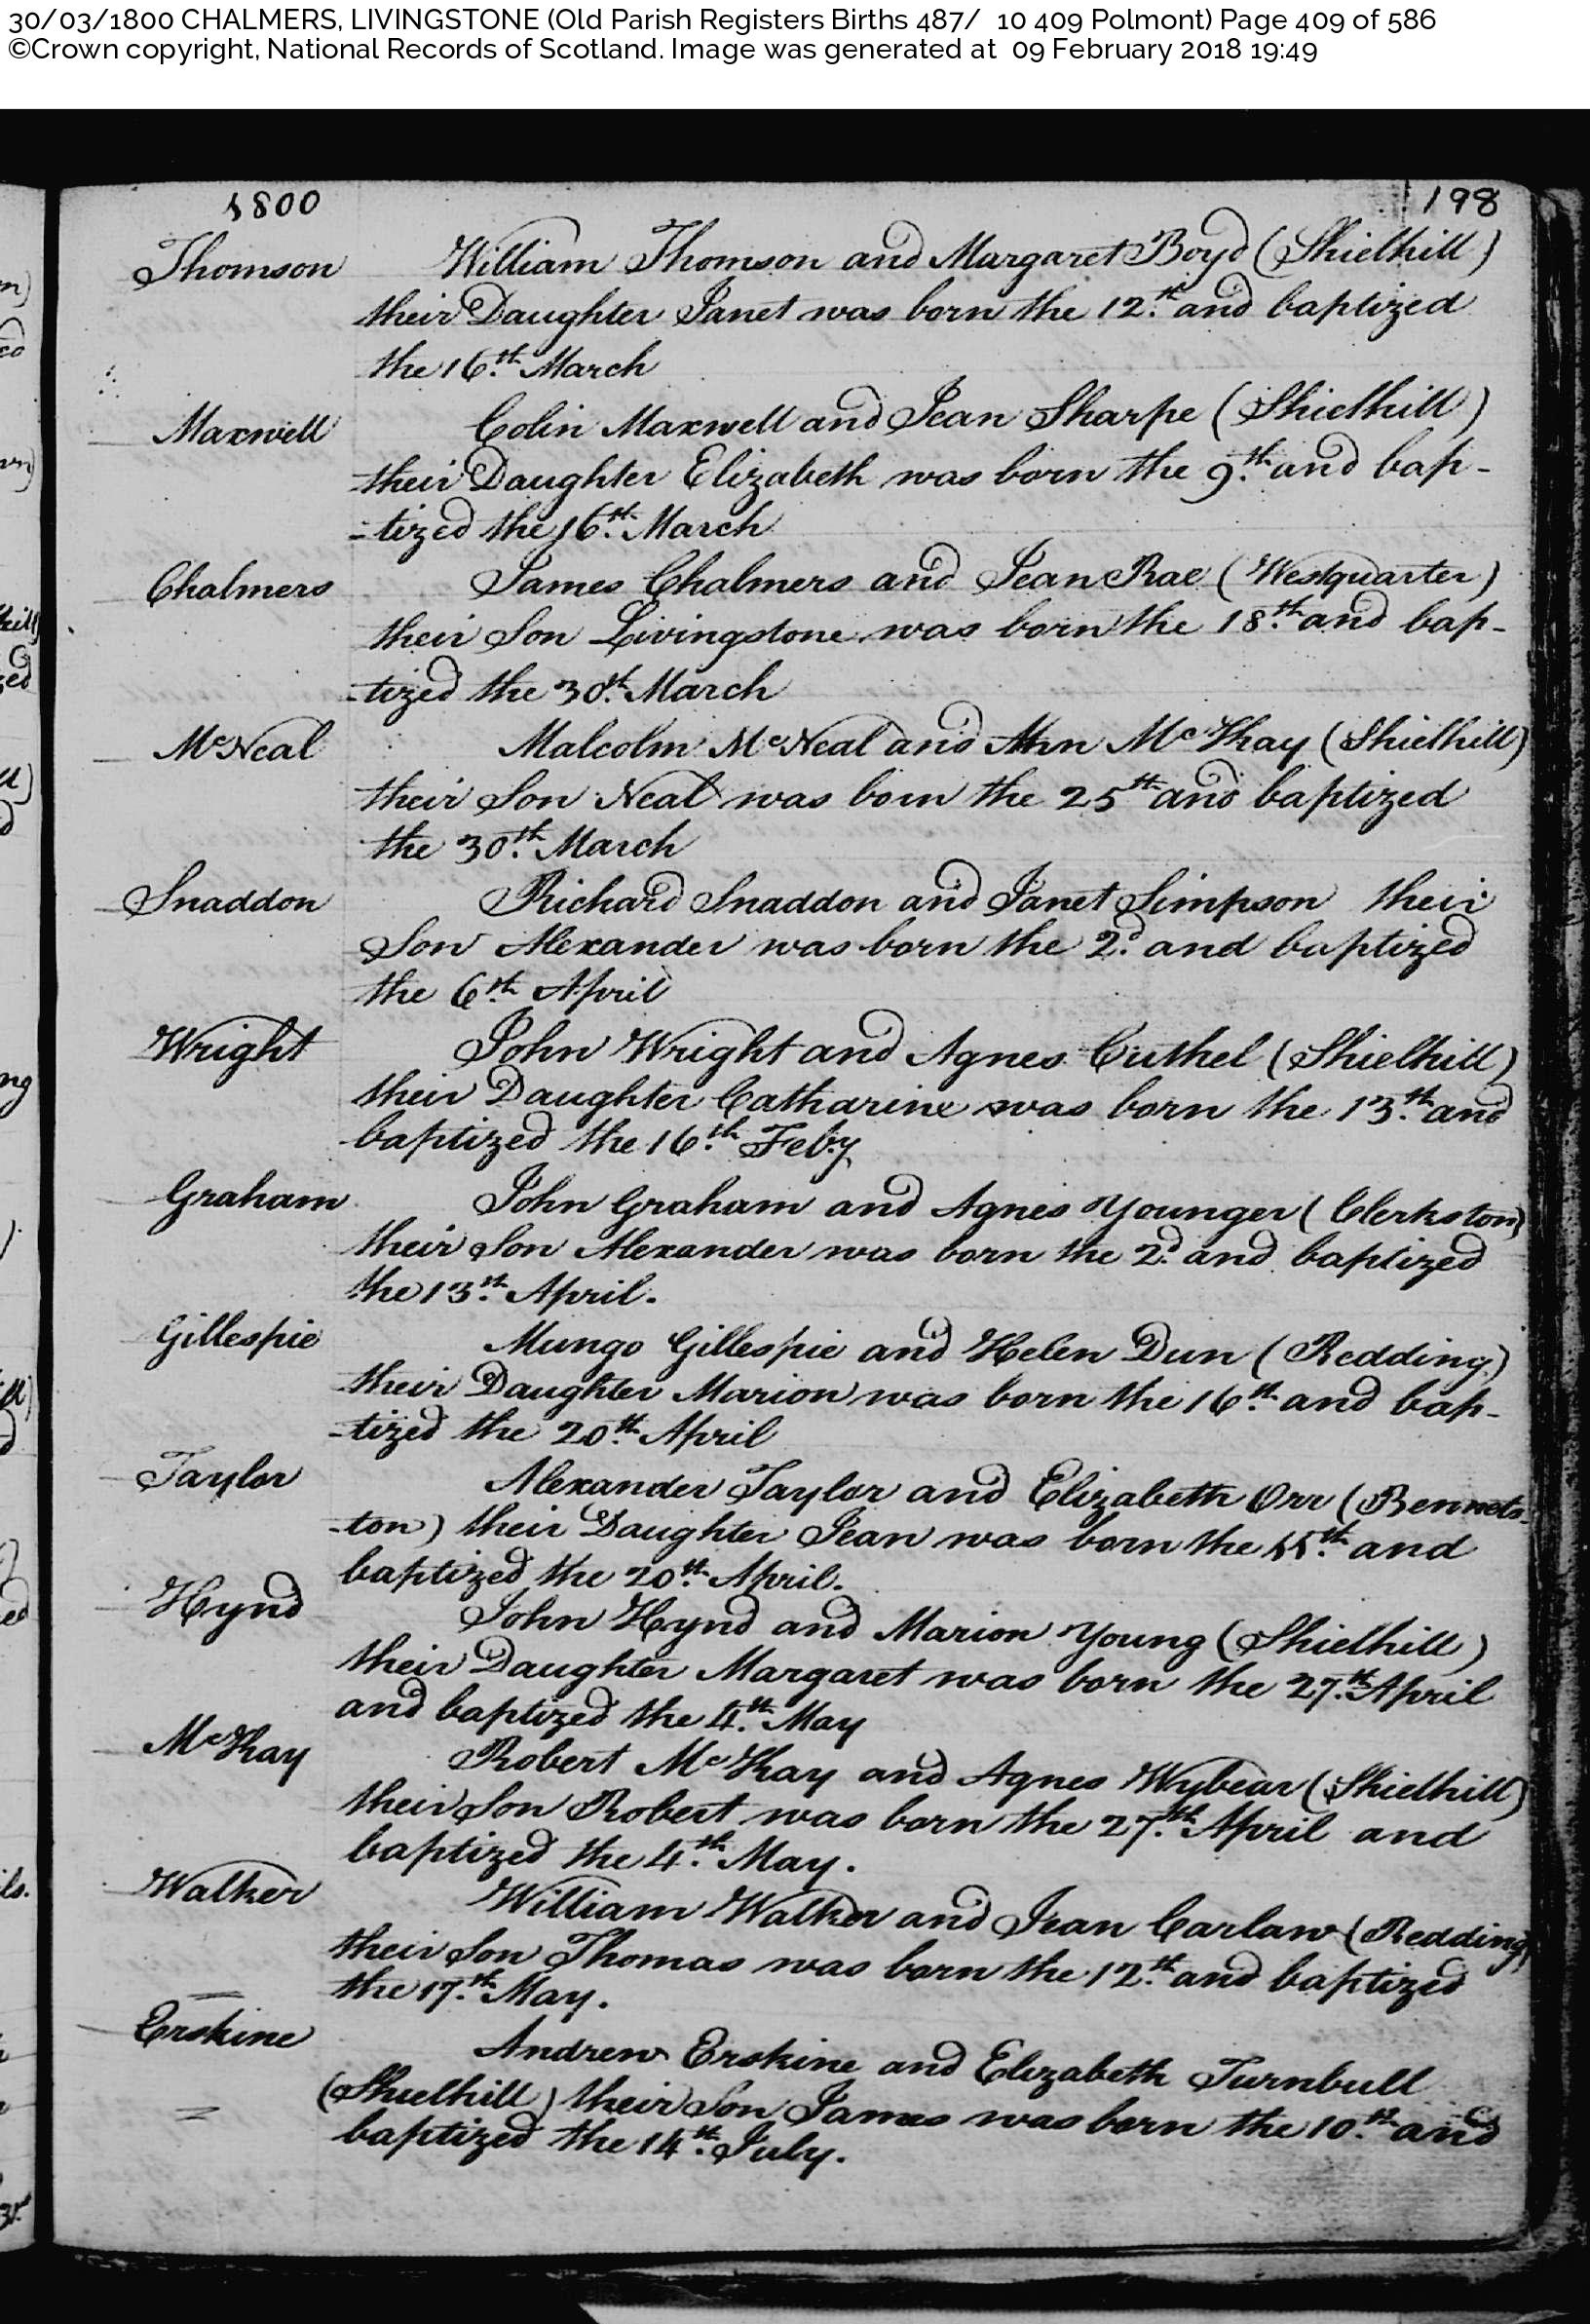 30/03/1800 CHALMERS, LIVINGSTONE (Old Parish Registers Births 487/ 10 409 Polmont) Page 409 of 586
©Crown copyright, National Records of Scotland. Image was generated at 09 February 2018 19:49
1800 198
Thomson William Thomson and Margaret Boyd (Shielhill)
their Daughter Janet was born the 12.th and baptized
the 16.th March
Maxwell Colin Maxwell and Jean Sharpe (Shielhill)
their Daughter Elizabeth was born the 9.th and bap-
-tized the 16.th March
Chalmers James Chalmers and Jean Rae (Westquarter)
their Son Livingstone was born the 18.th and bap-
-tized the 30.th March
McNeal Malcolm McNeal and Ann McKay (Shielhill)
their Son Neal was born the 25th and baptized
the 30.th March
Snaddon Richard Snaddon and Janet Simpson their
Son Alexander was born the 2.d and baptized
the 6.th April
Wright John Wright and Agnes Cuthel (Shielhill)
their Daughter Catharine was born the 13.th and
baptized the 16.th Feby
Graham John Graham and Agnes Younger (Clerkston)
their Son Alexander was born the 2.d and baptized
the 13.th April.
Gillespie Mungo Gillespie and Helen Dun (Redding)
their Daughter Marion was born the 16.th and bap-
-tized the 20.th April
Taylor Alexander Taylor and Elizabeth Orr (Bennets-
-ton) their Daughter Jean was born the 11.th and
baptized the 20.th April.
Hynd John Hynd and Marion Young (Shielhill)
their Daughter Margaret was born the 27.th April
and baptized the 4.th May
McKay Robert McKay and Agnes Wybear (Shielhill)
their Son Robert was born the 27.th April and
baptized the 4.th May.
Walker William Walker and Jean Carlaw (Redding)
their Son Thomas was born the 12.th and baptized
the 17.th May.
Erskine Andrew Erskine and Elizabeth Turnbull
(Shielhill) their Son James was born the 10.th and
baptized the 14.th July.